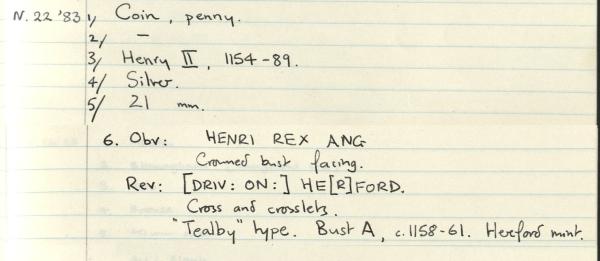 N. 22 '83 1/ Coin, penny.
2/ —
3/ Henry II, 1154-89.
4/ Silver.
5/ 21 mm.
6. Obv: HENRI REX ANG
Crowned bust facing.
Rev: [DRIV: ON:] HE[R]FORD.
Cross and crosslets.
"Tealby" type. Bust A, c.1158-61. Hereford mint.